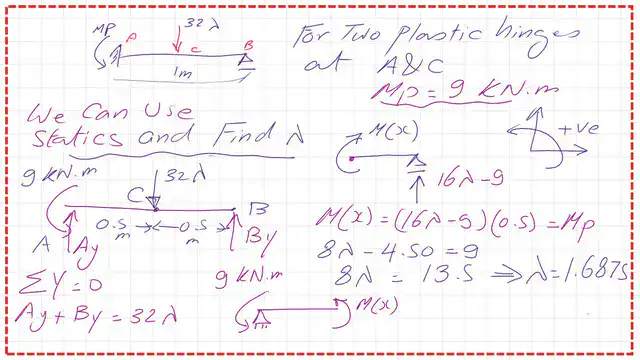 MP
A
32λ
C
B
1m
For Two plastic hinges
at A&C
Mp = 9 KN.m
We Can Use
Statics and Find λ
9 KN.m
C
32λ
B
0.5 m
0.5 m
A
Ay
By
ΣY = 0
Ay + By = 32λ
9 KN.m
M(x)
M(x)
+ve
16λ-9
M(x) = (16λ-9)(0.5) = Mp
8λ - 4.50 = 9
8λ = 13.5 ⇒ λ = 1.6875